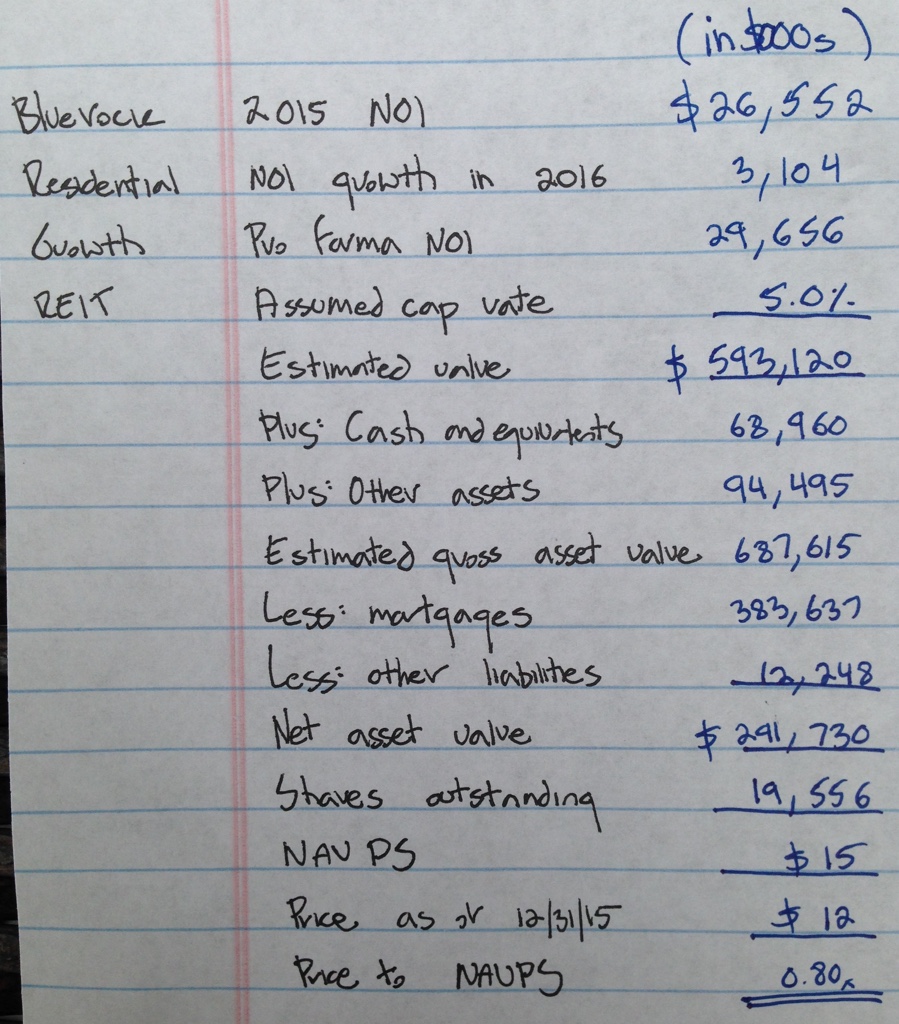 (in $000s)
Bluerock 2015 NOI $26,552
Residential NOI growth in 2016 3,104
Growth Pro Forma NOI 29,656
REIT Assumed cap rate 5.0%
Estimated value $ 593,120
Plus: Cash and equivalents 68,960
Plus: Other assets 94,495
Estimated gross asset value 687,615
Less: mortgages 383,637
Less: other liabilities 12,248
Net asset value $ 291,730
Shares outstanding 19,556
NAV PS $ 15
Price as of 12/31/15 $ 12
Price to NAVPS 0.80x